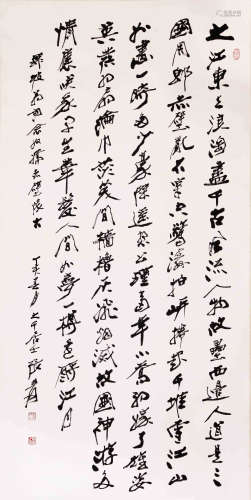 大江東去浪淘盡千古風流人物故壘西邊人道是三
國周郎赤壁亂石穿空驚濤拍岸捲起千堆雪江山
如畫一時多少豪傑遙想公瑾當年小喬初嫁了雄姿
英發羽扇綸巾談笑間檣櫓灰飛煙滅故國神遊多
情應笑我早生華髮人間如夢一樽還酹江月
赤壁懷古
大千居士張爰